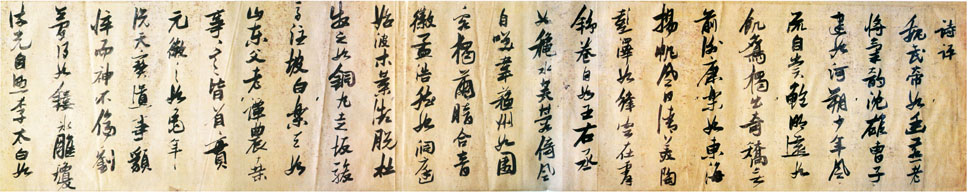 詩評
魏武帝如幽燕老
將氣韵沈雄曹子
建如河朔少年風
流自賞鮑明遠如
飢鷹獨出奇矯無
前謝康樂如東海
揚帆風日清麗陶
彭澤如絳雲在霄
舒卷自如王右丞
如穐水芙蓉倚風
自咲韋蘇州如園
客獨繭暗合音
徽孟浩然如洞庭
始波木葉漸脫杜
牧之如銅丸走坂駿
馬注坡白樂天如
山東父老課農桑
事〻皆實
元微之如龜年
說天寶遺事顏
悴而神不傷劉
夢得如鏤冰雕瓊
流光自照李太白如